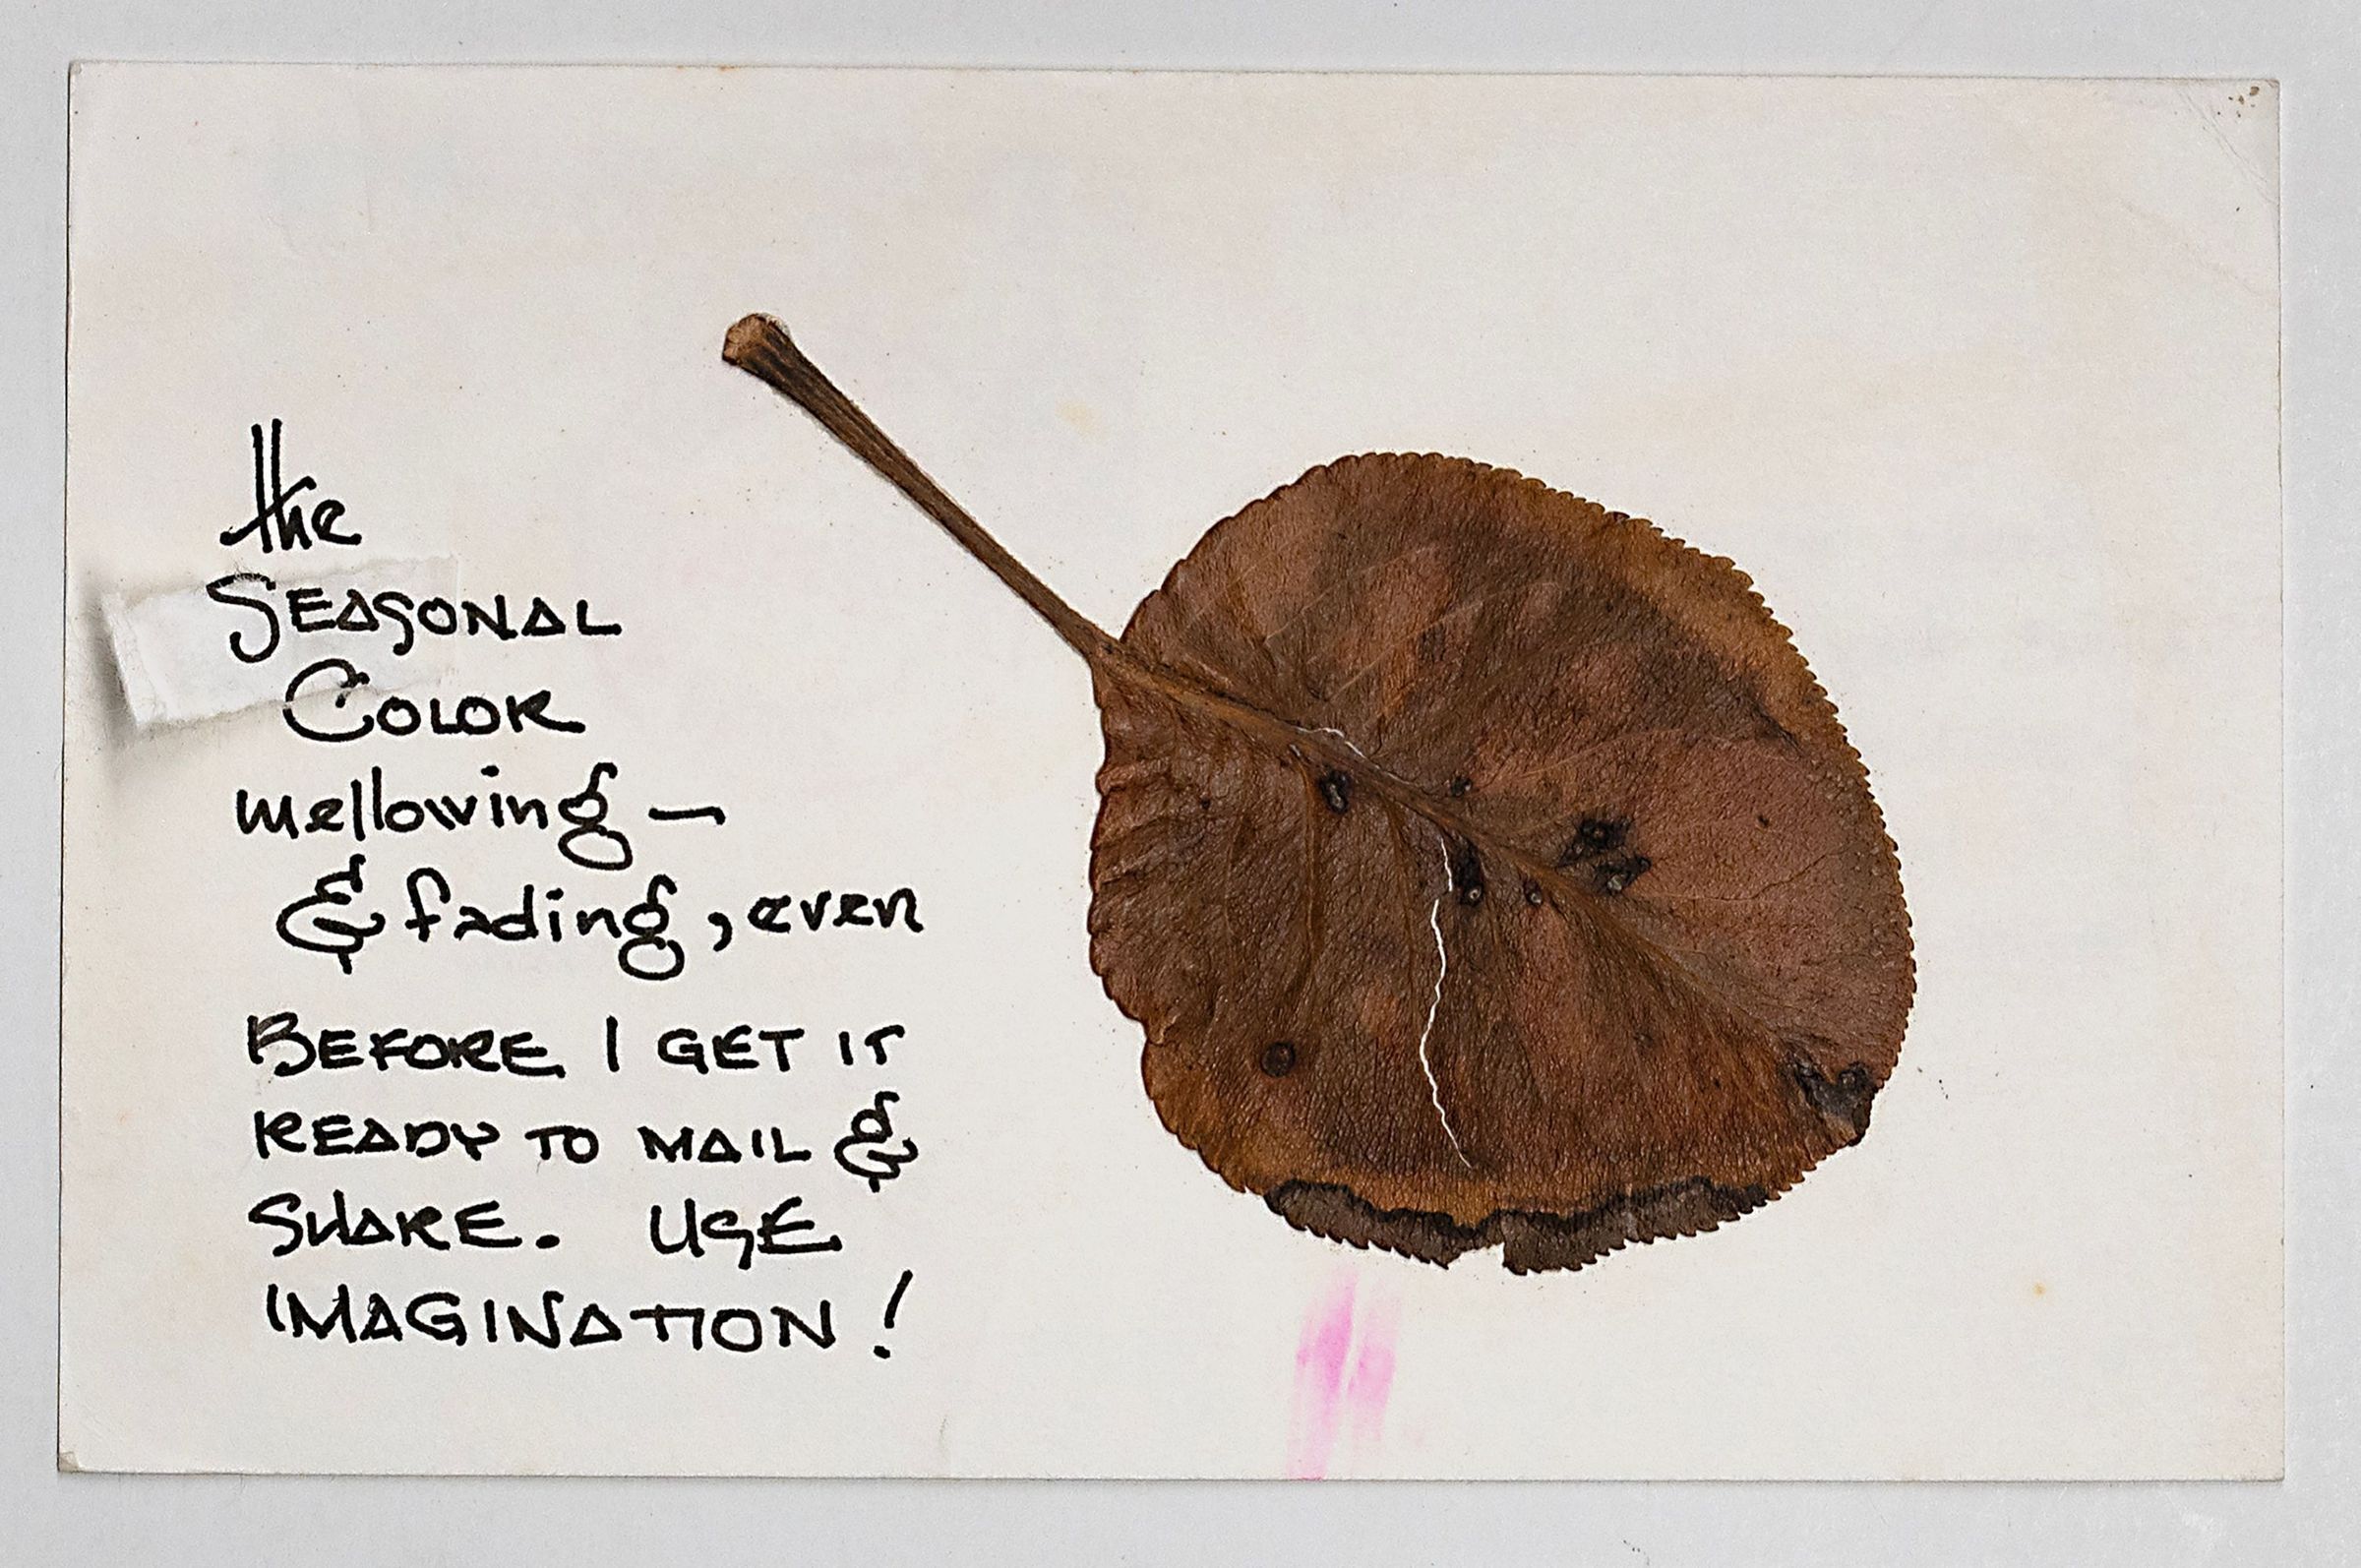 the
SEASONAL
COLOR
mellowing —
& fading, even
BEFORE I GET IT
READY TO MAIL &
SHARE. USE
IMAGINATION!